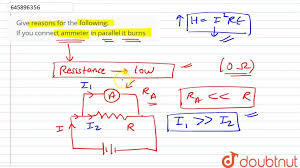 645896356
Give reasons for the following:
If you connect ammeter in parallel it burns
↑ H = I²Rt
Resistance → low
(0 Ω)
I₁
A
R_A
R_A << R
I
I₂
R
I₁ >> I₂
doubtnut